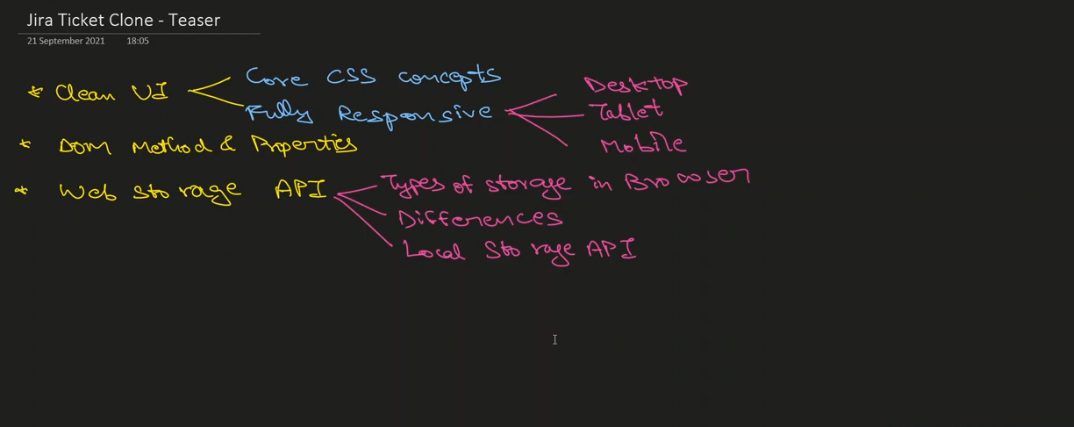 Jira Ticket Clone - Teaser
21 September 2021 18:05
* Clean UI
Core CSS concepts
Fully Responsive
Desktop
Tablet
Mobile
* DOM Method & Properties
* Web Storage API
Types of storage in Browser
Differences
Local Storage API